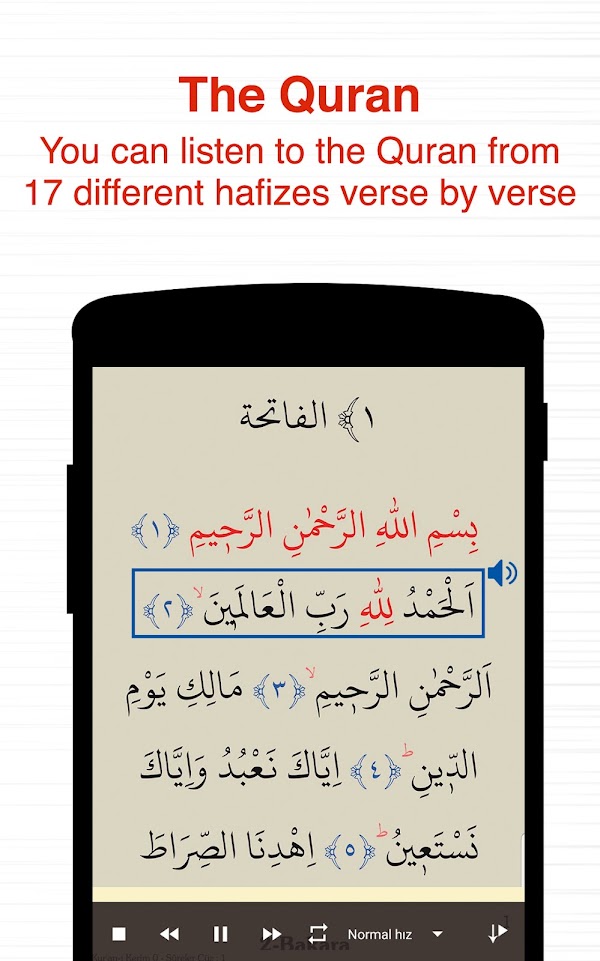 The Quran
You can listen to the Quran from
17 different hafizes verse by verse
١﴾ الفاتحة
بِسْمِ اللّٰهِ الرَّحْمٰنِ الرَّحٖيمِ ﴿١﴾
اَلْحَمْدُ لِلّٰهِ رَبِّ الْعَالَمٖينَۙ ﴿٢﴾
اَلرَّحْمٰنِ الرَّحٖيمِۙ ﴿٣﴾ مَالِكِ يَوْمِ
الدّٖينِؕ ﴿٤﴾ اِيَّاكَ نَعْبُدُ وَاِيَّاكَ
نَسْتَعٖينُؕ ﴿٥﴾ اِهْدِنَا الصِّرَاطَ
1
Normal hız
2-Bakara